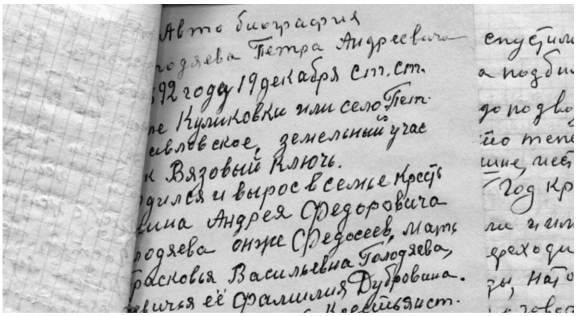 Авто биография
лодяева Петра Андреевича
892 году 19 декабря ст. ст.
не Куликовки или село Пет-
авловское, земельный учас
к Вязовый Ключь.
одился и вырос в семье Кресть
нина Андрея Федоровича
лодяева он же Федосеев, мать
расковья Васильевна Голодяева,
евичья её фамилия Дубровина.
Крестьянст.
спустили
а позби
до подво
шие, нет
Год кр
ли и им
переходи
ды, на то